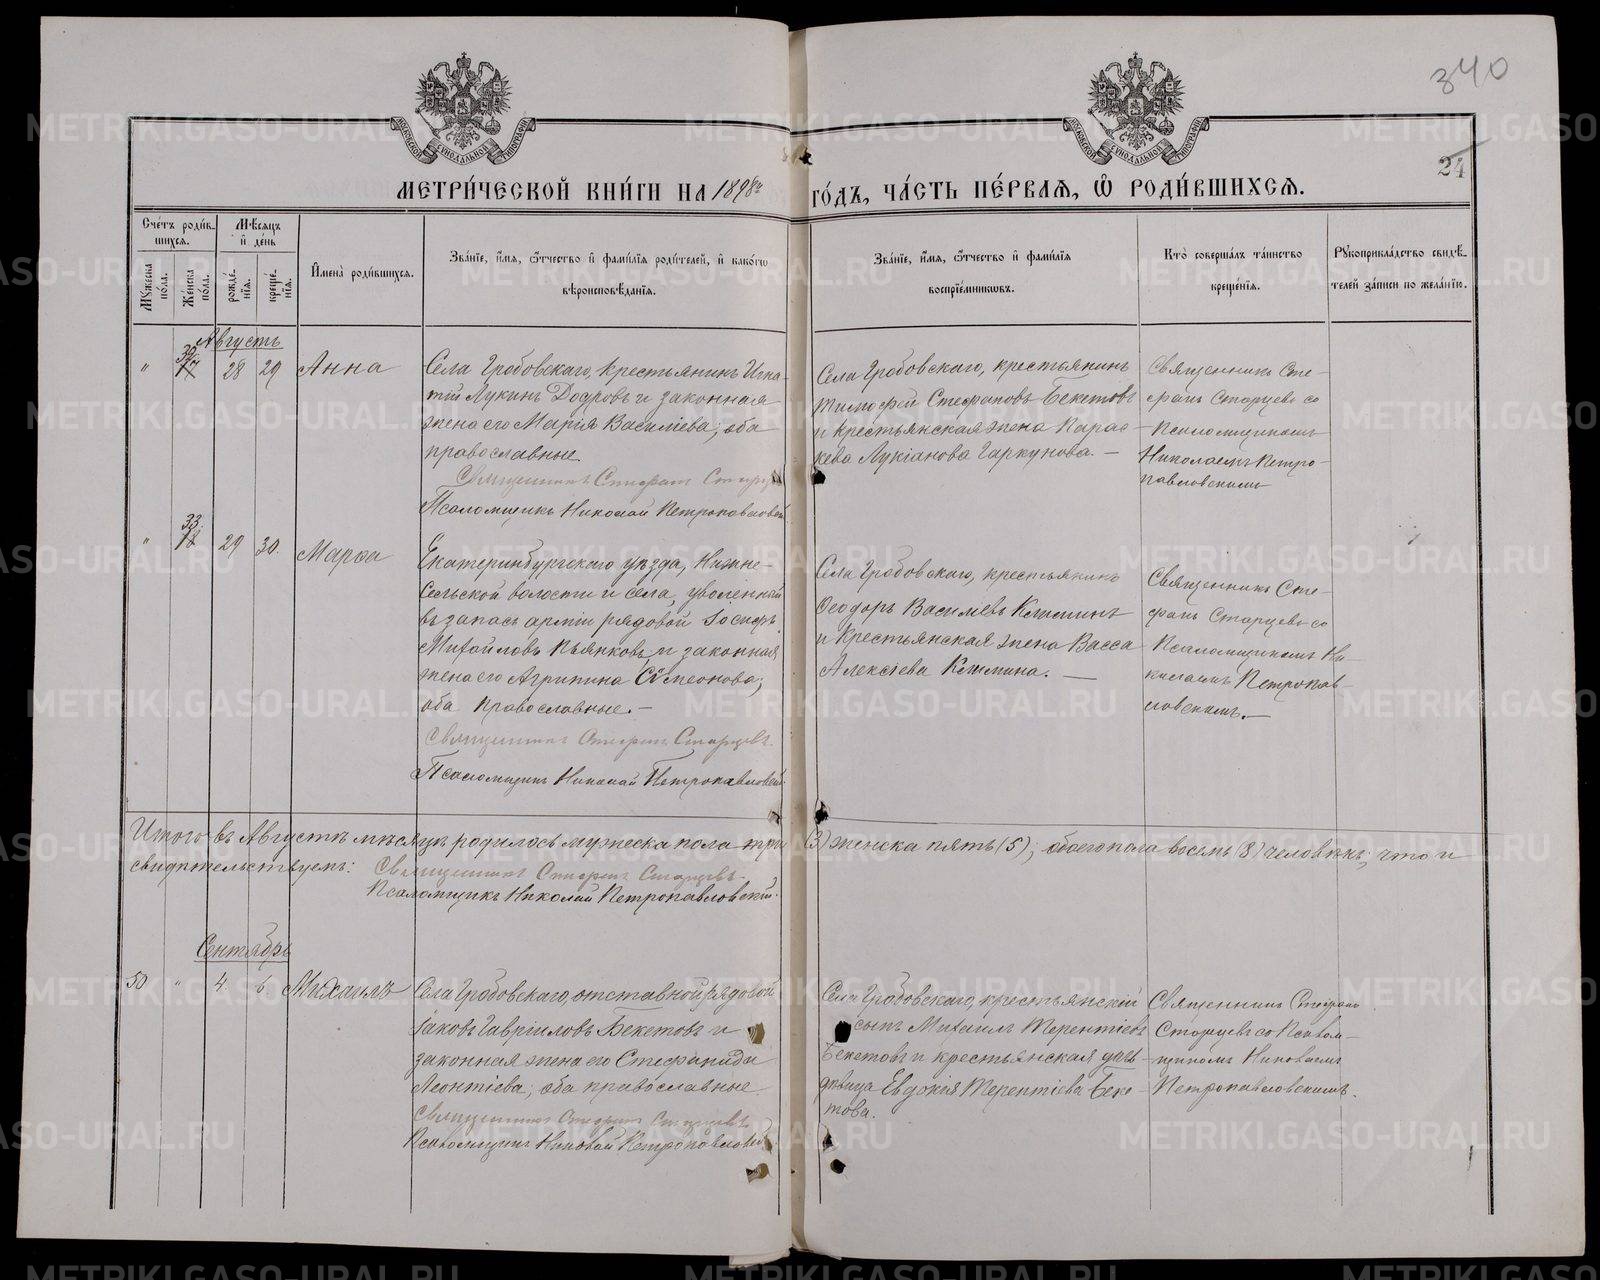 340
24
МОСКОВСКОЙ СѴНОДАЛЬНОЙ ТИПОГРАФІИ
МОСКОВСКОЙ СѴНОДАЛЬНОЙ ТИПОГРАФІИ
МЕТРИ́ЧЕСКОЙ КНИ́ГИ НА 1898й ГО́ДЪ, ЧА́СТЬ ПЕ́РВАЯ, Ѽ РОДИ́ВШИХСЯ.
Сче́тъ роди́в-
шихся.
Мѣ́сяцъ
и҆ де́нь
Мꙋ́жеска
по́ла.
Же́нска
по́ла.
рожде́-
нїя.
креще́-
нїя.
И҆мена̀ роди́вшихся.
Зва́нїе, и҆́мя, ѻ҆́тчество и҆ фамі́лїя роди́телей, и҆ како́гѡ
вѣроисповѣ́данїя.
Зва́нїе, и҆́мя, ѻ҆́тчество и҆ фамі́лїя
воспрїе́мникѡвъ.
Кто̀ соверша́лъ та́инство
креще́нїя.
Рꙋкоприкла́дство свидѣ́-
телей за́писи по жела́нїю.
Августъ
" 32 17 28 29 Анна
Села Гробовскаго, крестьянинъ Игна-
тій Лукинъ Додровъ и законная
жена его Марія Василіева; оба
православные.
Священникъ Стефанъ Старцевъ
Псаломщикъ Николай Петропавловскій
Села Гробовскаго, крестьянинъ
Тимофей Стефановъ Бекетовъ
и крестьянская жена Парас-
кева Лукіанова Гаркунова. —
Священникъ Сте-
фанъ Старцевъ со
Псаломщикомъ
Николаемъ Петро-
павловскимъ
" 33 18 29 30. Марѳа
Екатеринбургскаго уѣзда, Нижне-
Сельской волости и села, уволенный
въ запасъ арміи рядовой Іосифъ
Михайловъ Пьянковъ и законная
жена его Агрипина Сѵмеонова;
оба православные. —
Священникъ Стефанъ Старцевъ.
Псаломщикъ Николай Петропавловскій
Села Гробовскаго, крестьянинъ
Ѳеодоръ Василіевъ Клюминъ
и крестьянская жена Васса
Алексіева Клюмина. —
Священникъ Сте-
фанъ Старцевъ со
Псаломщикомъ Ни-
колаемъ Петропав-
ловскимъ. —
Итого въ Августѣ мѣсяцѣ родилось мужеска пола три (3) женска пять (5); обоего пола восемь (8) человѣкъ; что и
свидѣтельствуемъ: Священникъ Стефанъ Старцевъ.
Псаломщикъ Николай Петропавловскій.
Сентябрь
50 " 4. 6. Михаилъ
Села Гробовскаго, отставной рядовой
Іаковъ Гавріиловъ Бекетовъ и
законная жена его Стефанида
Леонтіева; оба православные.
Священникъ Стефанъ Старцевъ
Псаломщикъ Николай Петропавловскій
Села Гробовскаго, крестьянскій
сынъ Михаилъ Терентіевъ
Бекетовъ и крестьянская дочь
дѣвица Евдокія Терентіева Беке-
това.
Священникъ Стефанъ
Старцевъ со Псалом-
щикомъ Николаемъ
Петропавловскимъ.
METRIKI.GASO-URAL.RU